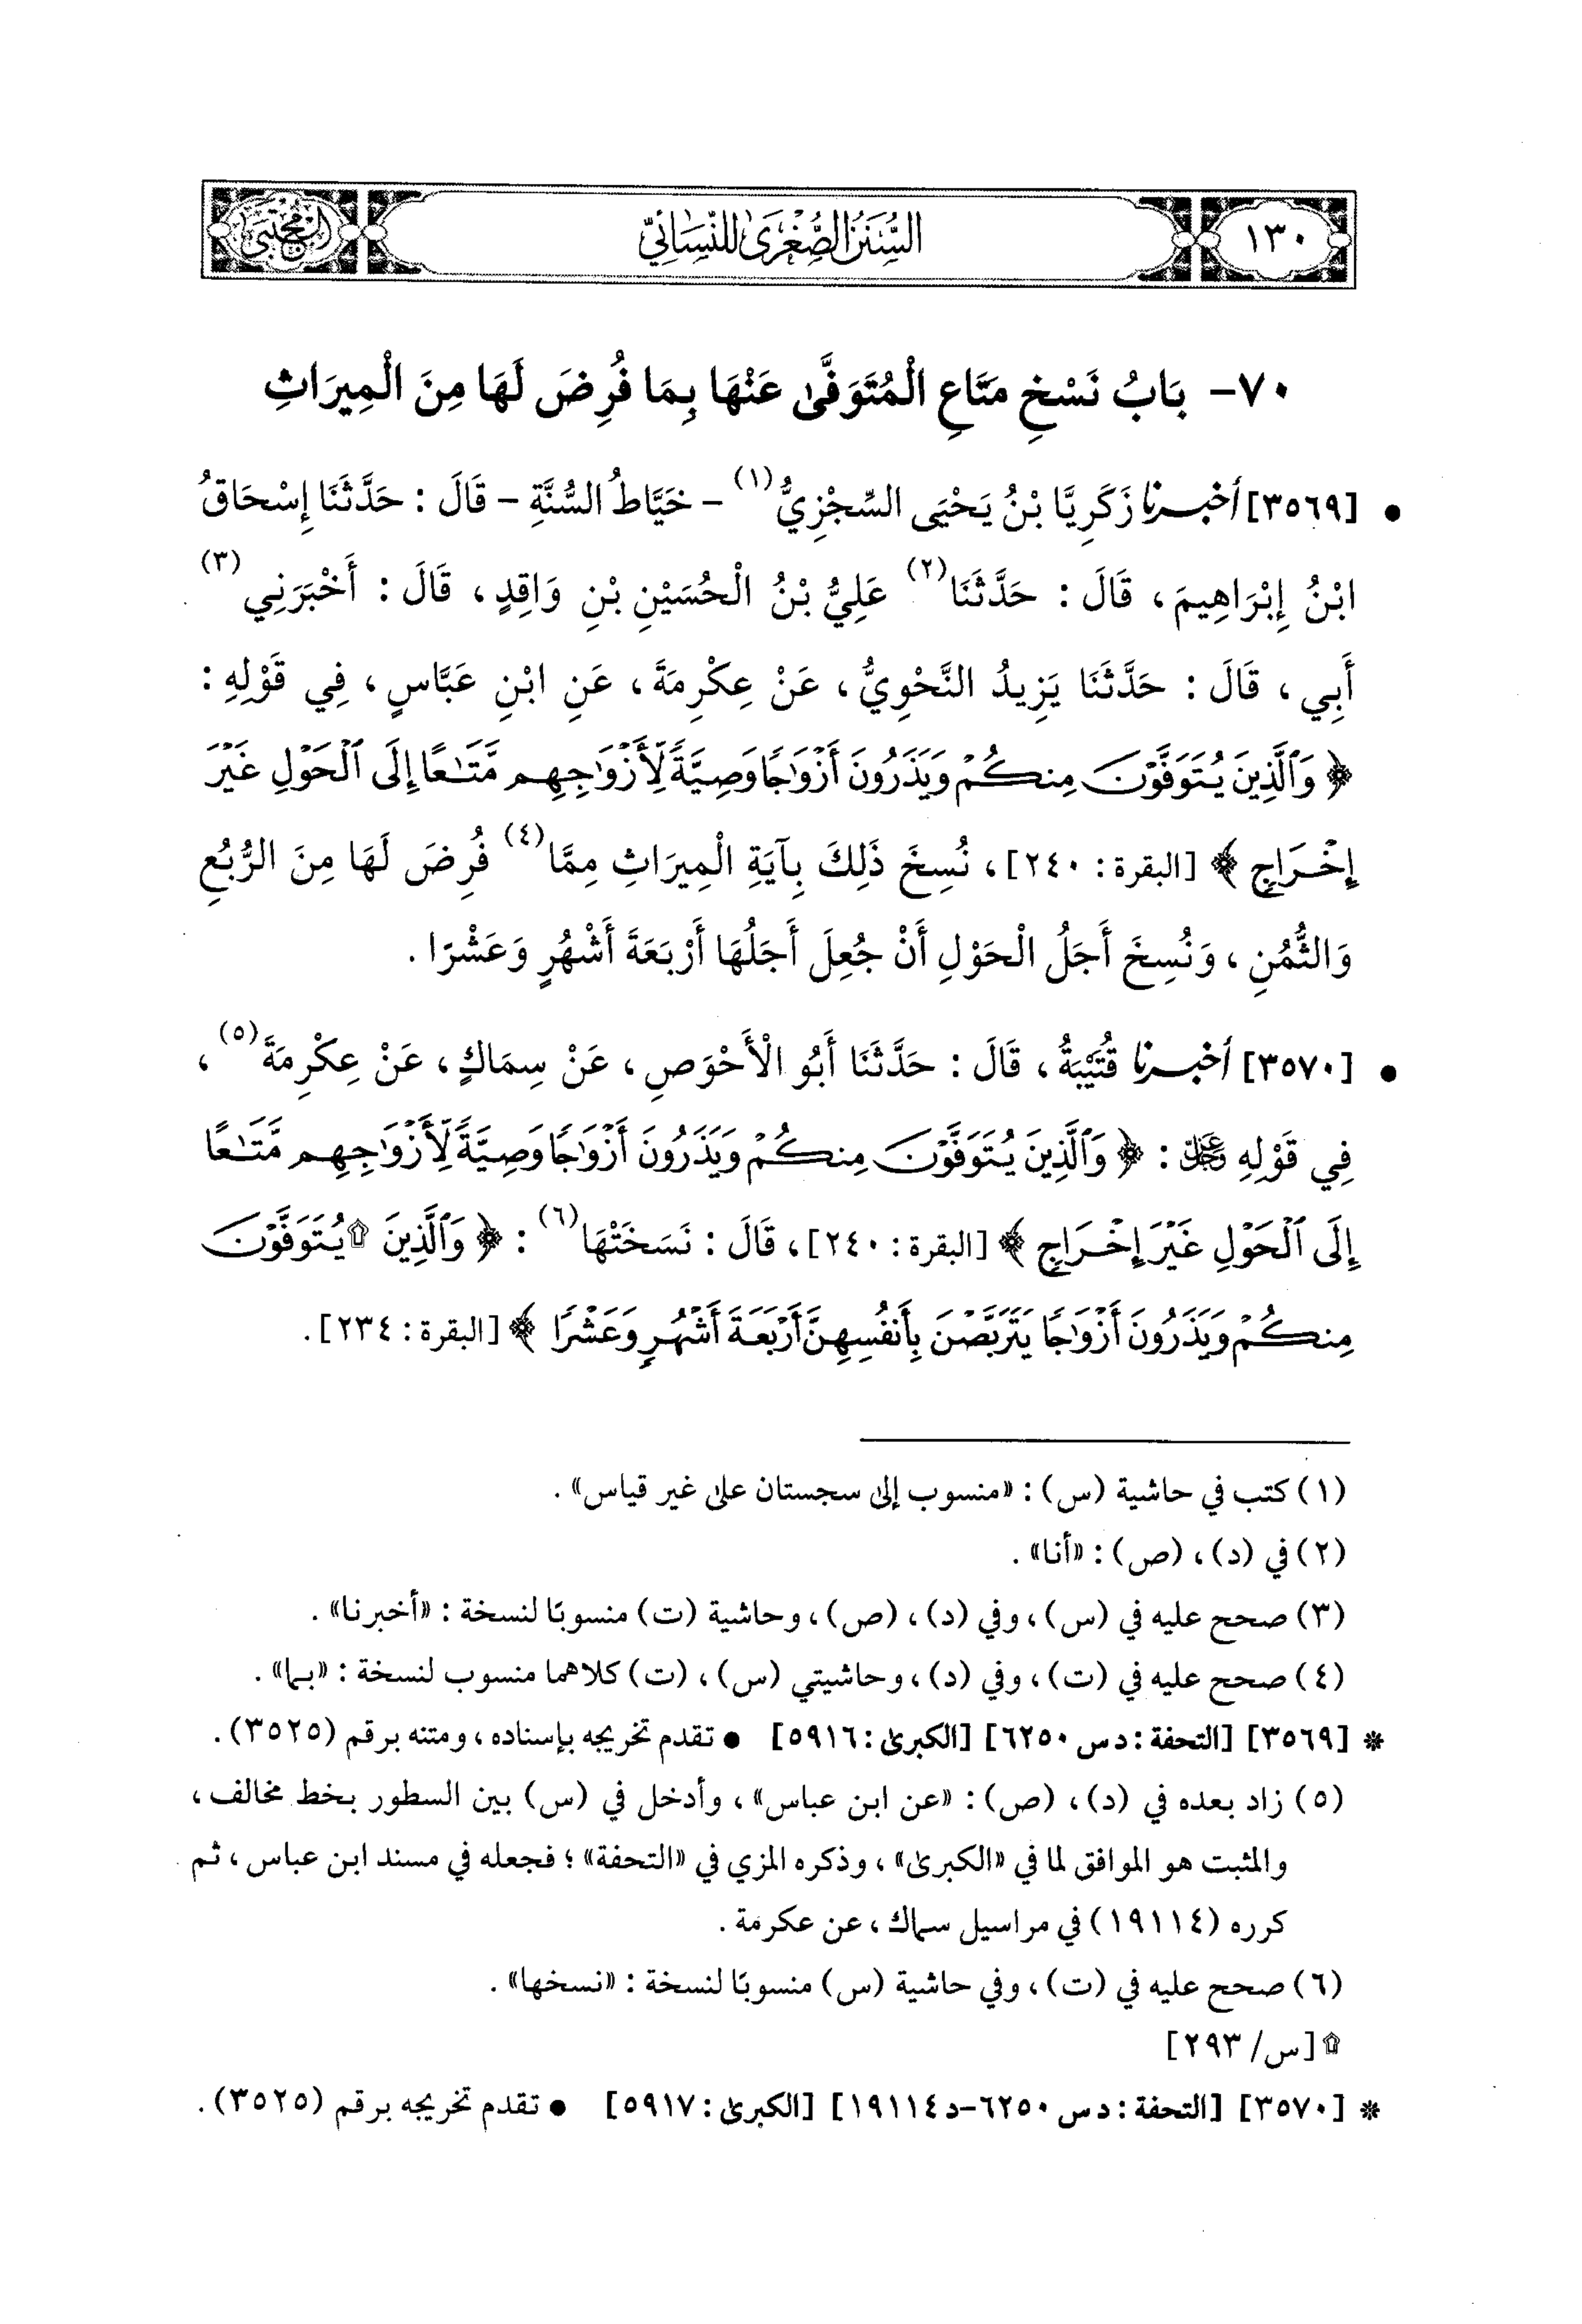 ١٣٠
السُّنَنُ الصُّغْرَىٰ لِلنَّسَائِيِّ
المجتبى
٧٠- بَابُ نَسْخِ مَتَاعِ الْمُتَوَفَّىٰ عَنْهَا بِمَا فُرِضَ لَهَا مِنَ الْمِيرَاثِ
• [٣٥٦٩] أخبرنا زَكَرِيَّا بْنُ يَحْيَى السِّجْزِيُّ(١) - خَيَّاطُ السُّنَّةِ - قَالَ : حَدَّثَنَا إِسْحَاقُ
ابْنُ إِبْرَاهِيمَ، قَالَ : حَدَّثَنَا(٢) عَلِيُّ بْنُ الْحُسَيْنِ بْنِ وَاقِدٍ، قَالَ : أَخْبَرَنِي(٣)
أَبِي، قَالَ : حَدَّثَنَا يَزِيدُ النَّحْوِيُّ، عَنْ عِكْرِمَةَ، عَنِ ابْنِ عَبَّاسٍ، فِي قَوْلِهِ :
﴿ وَٱلَّذِينَ يُتَوَفَّوْنَ مِنكُمْ وَيَذَرُونَ أَزْوَٰجًا وَصِيَّةً لِّأَزْوَٰجِهِم مَّتَـٰعًا إِلَى ٱلْحَوْلِ غَيْرَ
إِخْرَاجٍ ﴾ [البقرة : ٢٤٠]، نُسِخَ ذَلِكَ بِآيَةِ الْمِيرَاثِ مِمَّا(٤) فُرِضَ لَهَا مِنَ الرُّبُعِ
وَالثُّمُنِ، وَنُسِخَ أَجَلُ الْحَوْلِ أَنْ جُعِلَ أَجَلُهَا أَرْبَعَةَ أَشْهُرٍ وَعَشْرًا .
• [٣٥٧٠] أخبرنا قُتَيْبَةُ، قَالَ : حَدَّثَنَا أَبُو الْأَحْوَصِ، عَنْ سِمَاكٍ، عَنْ عِكْرِمَةَ(٥)،
فِي قَوْلِهِ عَزَّ وَجَلَّ : ﴿ وَٱلَّذِينَ يُتَوَفَّوْنَ مِنكُمْ وَيَذَرُونَ أَزْوَٰجًا وَصِيَّةً لِّأَزْوَٰجِهِم مَّتَـٰعًا
إِلَى ٱلْحَوْلِ غَيْرَ إِخْرَاجٍ ﴾ [البقرة : ٢٤٠]، قَالَ : نَسَخَتْهَا(٦) : ﴿ وَٱلَّذِينَ ۩ يُتَوَفَّوْنَ
مِنكُمْ وَيَذَرُونَ أَزْوَٰجًا يَتَرَبَّصْنَ بِأَنفُسِهِنَّ أَرْبَعَةَ أَشْهُرٍ وَعَشْرًا ﴾ [البقرة : ٢٣٤].
(١) كتب في حاشية (س) : «منسوب إلى سجستان على غير قياس».
(٢) في (د)، (ص) : «أنا».
(٣) صحح عليه في (س)، وفي (د)، (ص)، وحاشية (ت) منسوبًا لنسخة : «أخبرنا».
(٤) صحح عليه في (ت)، وفي (د)، وحاشيتي (س)، (ت) كلاهما منسوب لنسخة : «بما».
* [٣٥٦٩] [التحفة : د س ٦٢٥٠] [الكبرى : ٥٩١٦] • تقدم تخريجه بإسناده، ومتنه برقم (٣٥٢٥).
(٥) زاد بعده في (د)، (ص) : «عن ابن عباس»، وأدخل في (س) بين السطور بخط مخالف،
والمثبت هو الموافق لما في «الكبرى»، وذكره المزي في «التحفة»؛ فجعله في مسند ابن عباس، ثم
كرره (١٩١١٤) في مراسيل سماك، عن عكرمة .
(٦) صحح عليه في (ت)، وفي حاشية (س) منسوبًا لنسخة : «نسخها».
۩ [س/ ٢٩٣]
* [٣٥٧٠] [التحفة : د س ٦٢٥٠-د ١٩١١٤] [الكبرى : ٥٩١٧] • تقدم تخريجه برقم (٣٥٢٥).